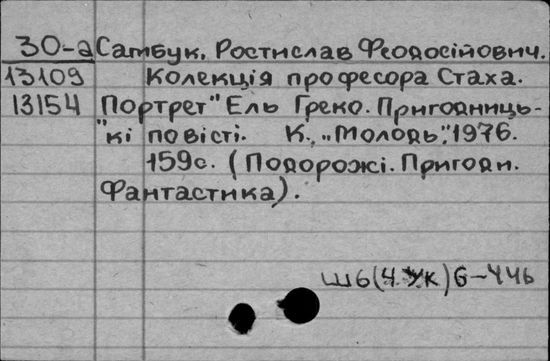 30-а Самбук, Ростислав Феодосійович.
13109 Колекція професора Стаха.
13154 Портрет" Ель Греко. Пригодниць-
"кі повісті. К., „Молодь", 1976.
159с. (Подорожі. Пригоди.
Фантастика).
Ш6(4.УК)6-446